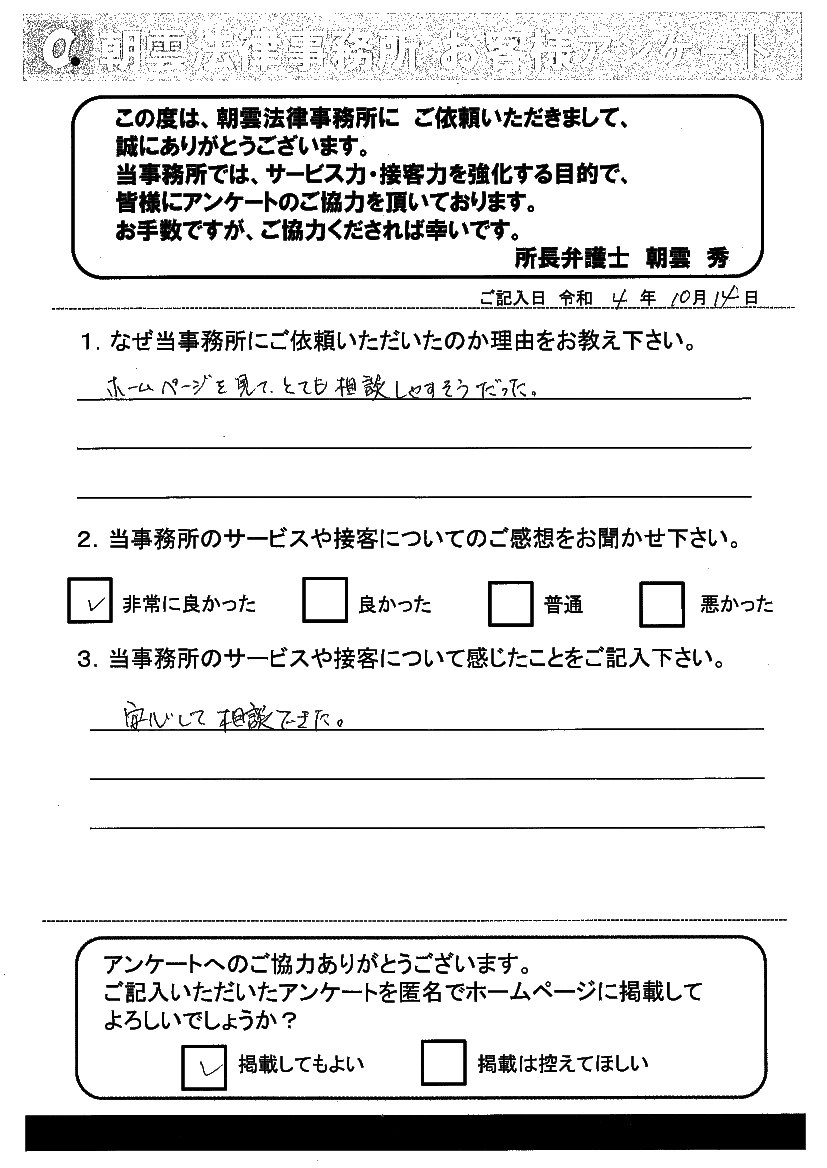 朝雲法律事務所 お客様アンケート
この度は、朝雲法律事務所に ご依頼いただきまして、
誠にありがとうございます。
当事務所では、サービス力・接客力を強化する目的で、
皆様にアンケートのご協力を頂いております。
お手数ですが、ご協力くだされば幸いです。
所長弁護士 朝雲 秀
ご記入日 令和 4 年 10月 14日
1. なぜ当事務所にご依頼いただいたのか理由をお教え下さい。
ホームページを見て、とても相談しやすそうだった。
2. 当事務所のサービスや接客についてのご感想をお聞かせ下さい。
非常に良かった 良かった 普通 悪かった
3. 当事務所のサービスや接客について感じたことをご記入下さい。
安心して相談できた。
アンケートへのご協力ありがとうございます。
ご記入いただいたアンケートを匿名でホームページに掲載して
よろしいでしょうか？
掲載してもよい 掲載は控えてほしい